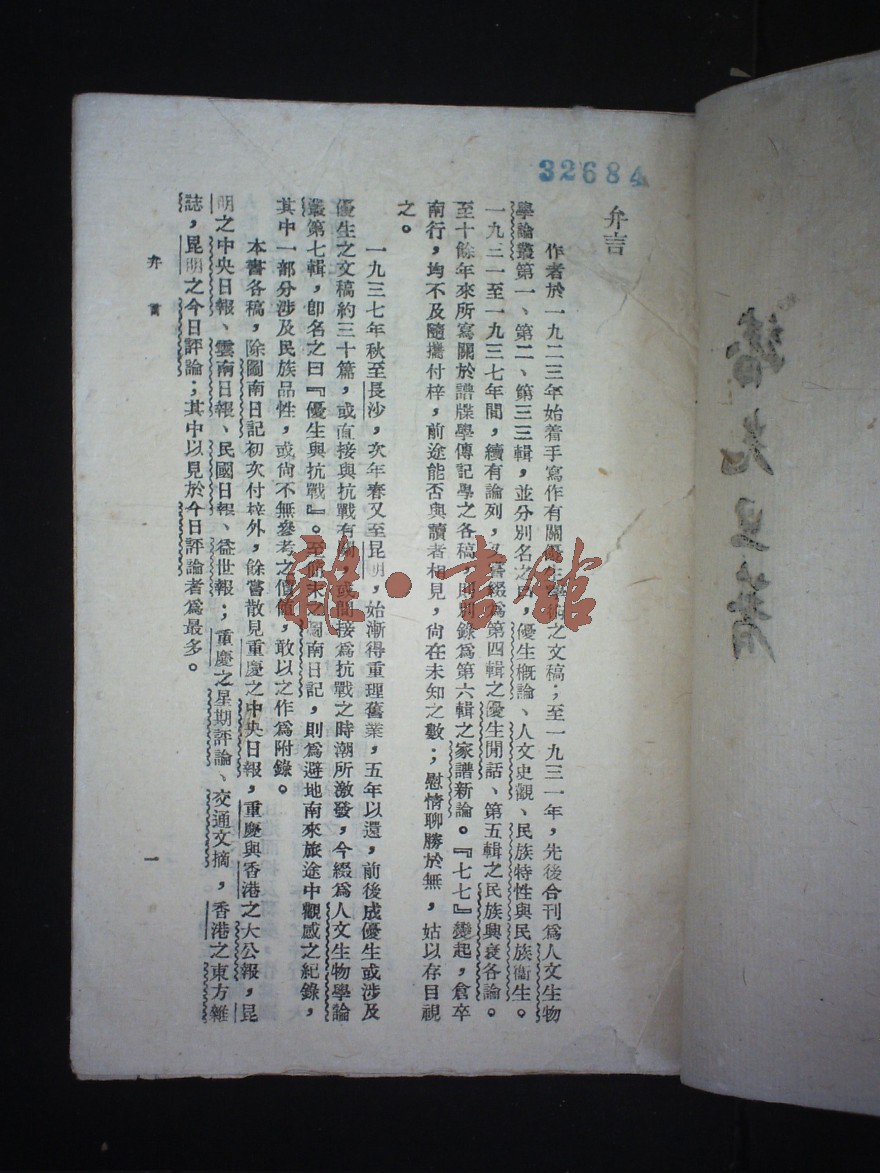 32684
弁言
作者於一九二三年始着手寫作有關優生學術之文稿；至一九三一年，先後合刊爲人文生物
學論叢第一、第二、第三三輯，並分別名之曰，優生概論、人文史觀、民族特性與民族衞生。
一九三一至一九三七年間，續有論列，綴爲第四輯之優生閒話、第五輯之民族興衰各論。
至十餘年來所寫關於譜牒學傳記學之各稿，則別錄爲第六輯之家譜新論。『七七』變起，倉卒
南行，均不及隨攜付梓，前途能否與讀者相見，尙在未知之數；慰情聊勝於無，姑以存目視
之。
一九三七年秋至長沙，次年春又至昆明，始漸得重理舊業，五年以還，前後成優生或涉及
優生之文稿約三十篇，或直接與抗戰有關，或間接爲抗戰之時潮所激發，今綴爲人文生物學論
叢第七輯，卽名之曰『優生與抗戰』。至篇末之圖南日記，則爲避地南來旅途中觀感之紀錄，
其中一部分涉及民族品性，或尙不無參考之價値，敢以之作爲附錄。
本書各稿，除圖南日記初次付梓外，餘嘗散見重慶之中央日報，重慶與香港之大公報，昆
明之中央日報、雲南日報、民國日報、益世報；重慶之星期評論、交通文摘，香港之東方雜
誌，昆明之今日評論；其中以見於今日評論者爲最多。
弁言
一
潘光旦著
龍·書館